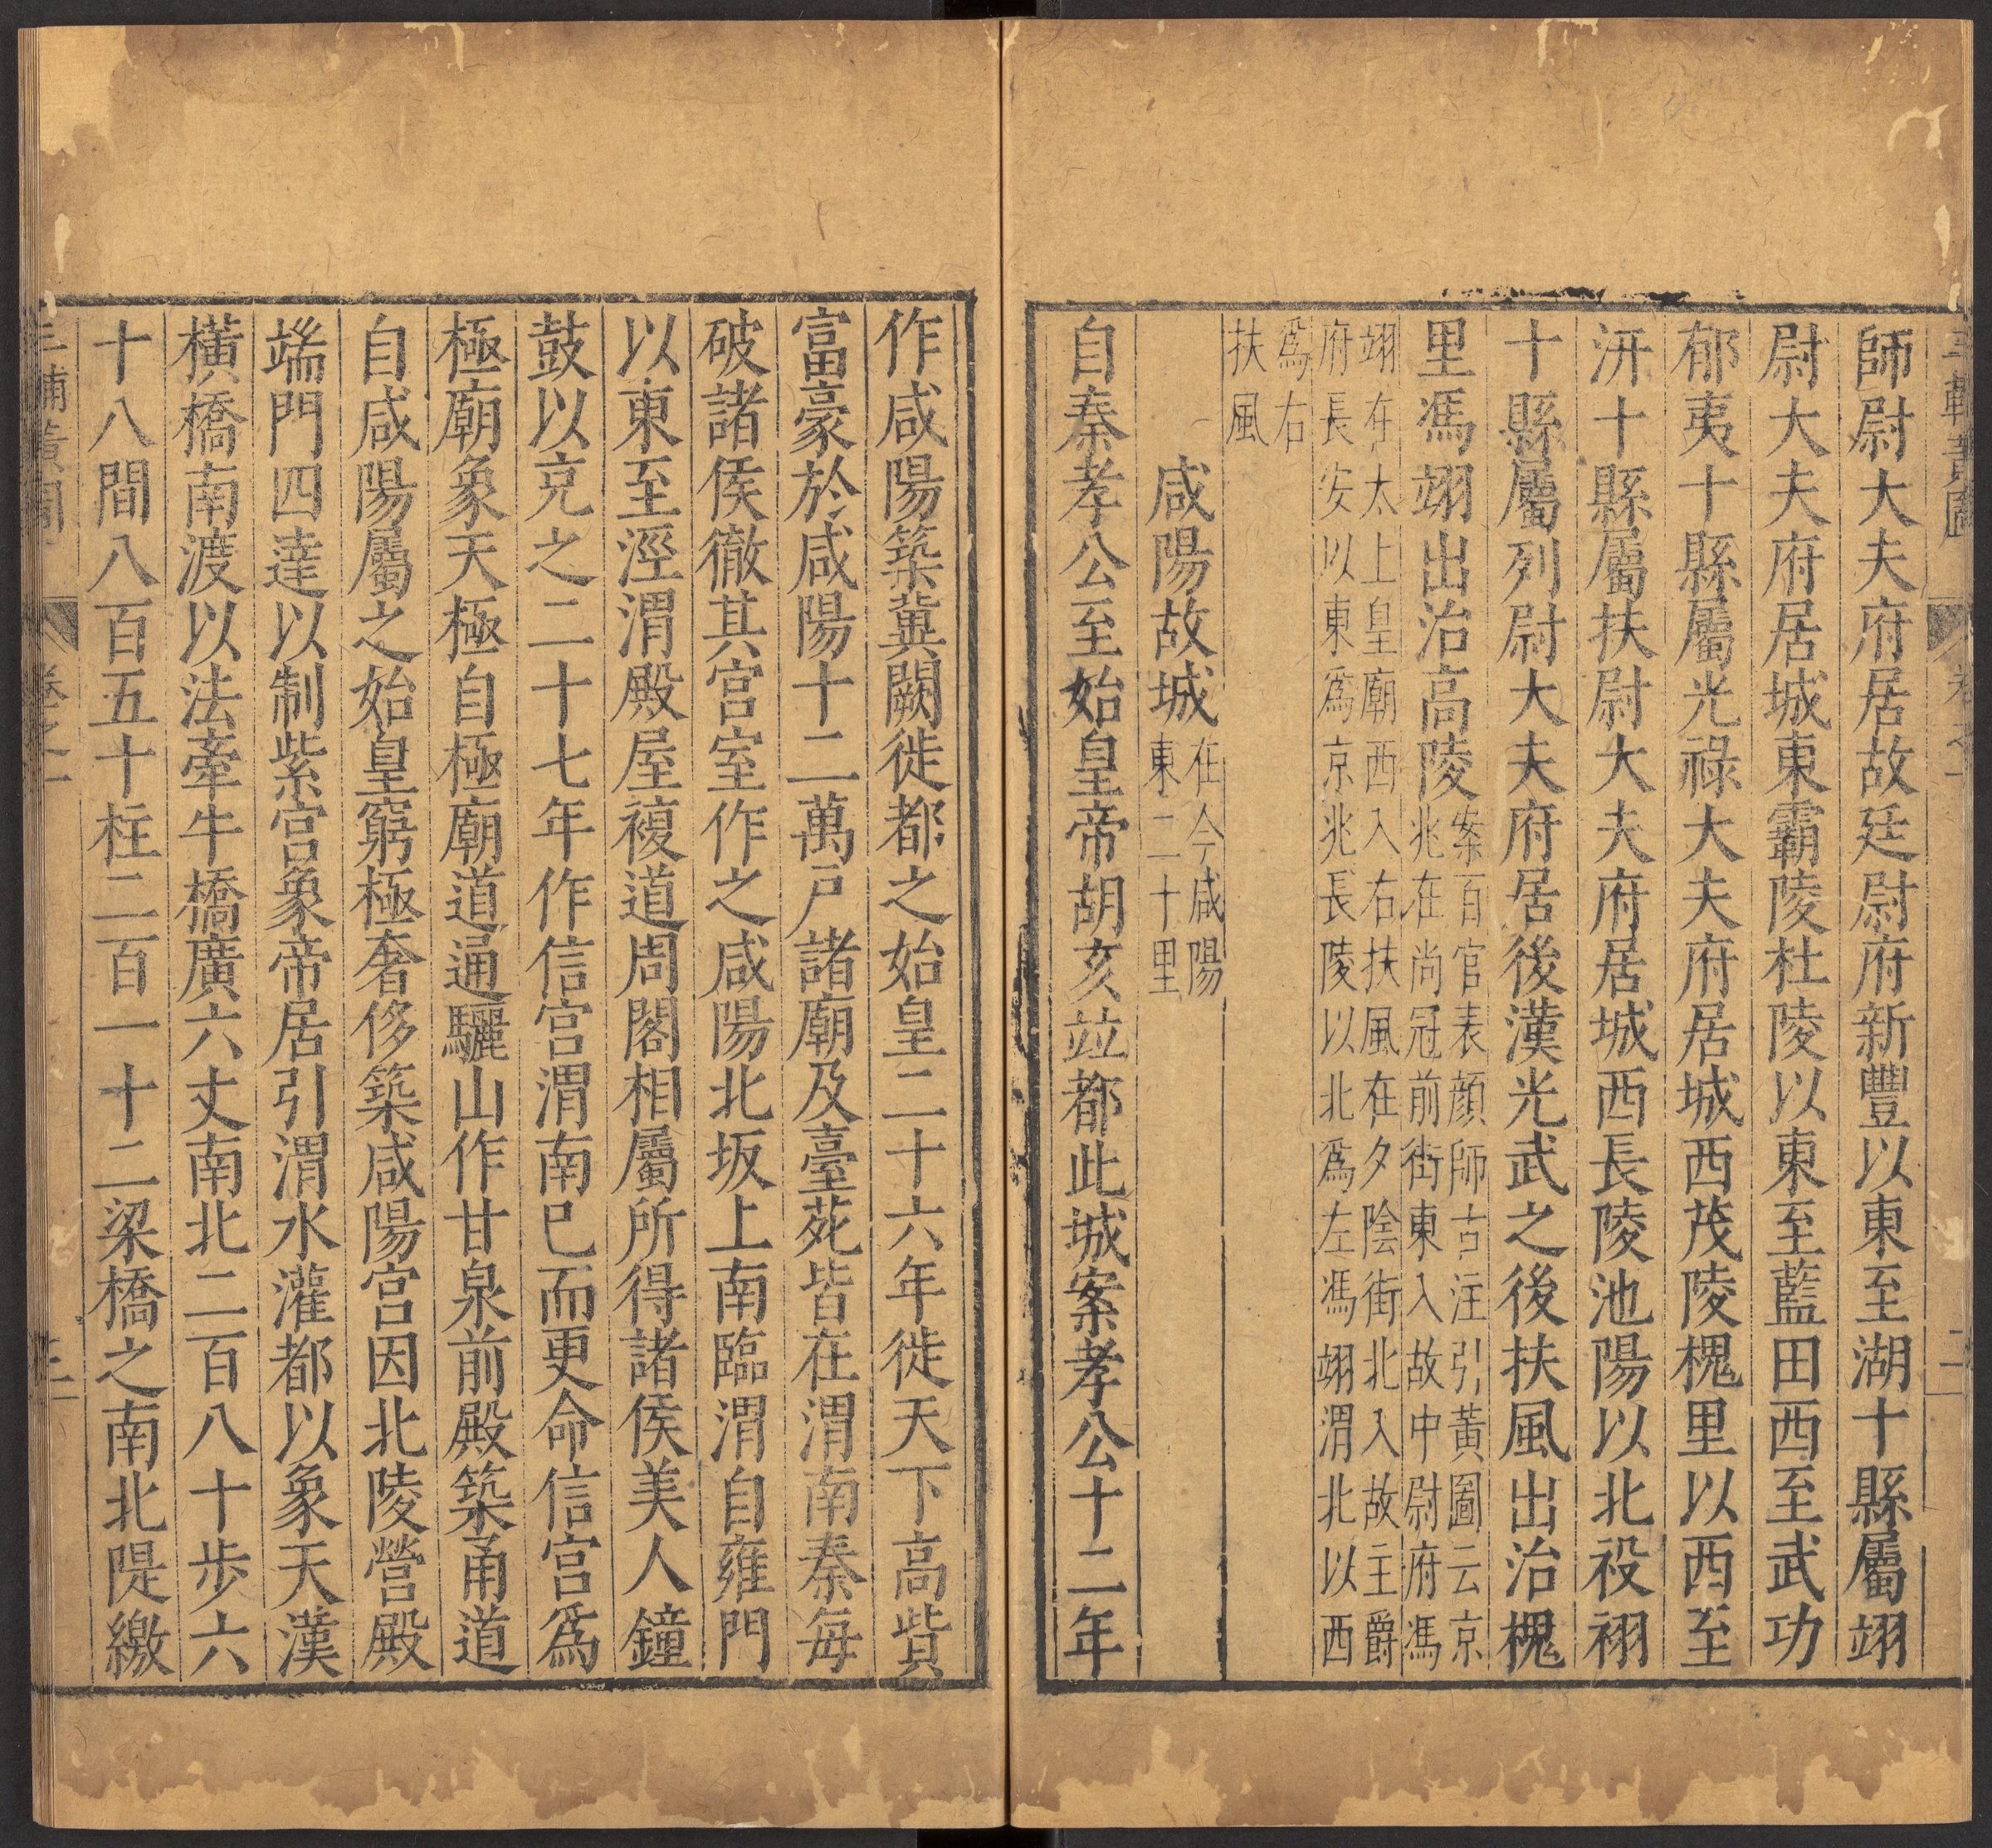 三輔黃圖 卷之一 二
師尉大夫府居故廷尉府新豐以東至湖十縣屬翊
尉大夫府居城東霸陵杜陵以東至藍田西至武功
郁夷十縣屬光祿大夫府居城西茂陵槐里以西至
汧十縣屬扶尉大夫府居城西長陵池陽以北祋祤
十縣屬列尉大夫府居後漢光武之後扶風出治槐
里馮翊出治高陵案百官表顏師古注引黃圖云京
兆在尚冠前街東入故中尉府馮
翊在太上皇廟西入右扶風在夕陰街北入故主爵
府長安以東爲京兆長陵以北爲左馮翊渭北以西
爲右
扶風
咸陽故城在今咸陽
東二十里
自秦孝公至始皇帝胡亥竝都此城案孝公十二年
作咸陽築冀闕徙都之始皇二十六年徙天下高貲
富豪於咸陽十二萬戶諸廟及臺苑皆在渭南秦每
破諸侯徹其宮室作之咸陽北坂上南臨渭自雍門
以東至涇渭殿屋複道周閣相屬所得諸侯美人鐘
鼓以充之二十七年作信宮渭南已而更命信宮爲
極廟象天極自極廟道通驪山作甘泉前殿築甬道
自咸陽屬之始皇窮極奢侈築咸陽宮因北陵營殿
端門四達以制紫宮象帝居引渭水灌都以象天漢
橫橋南渡以法牽牛橋廣六丈南北二百八十步六
十八間八百五十柱二百一十二梁橋之南北隄繳
三輔黃圖 卷之一 三